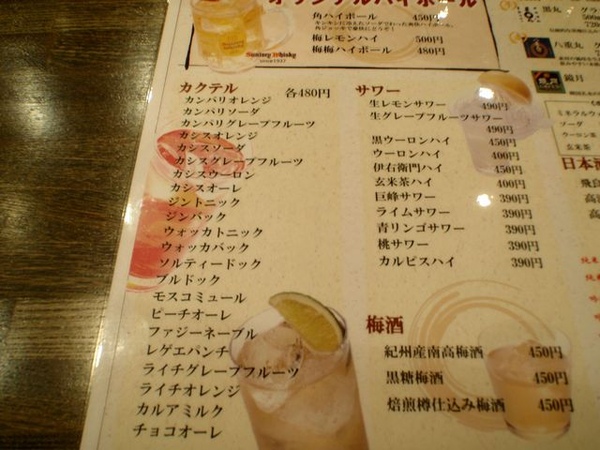 オリジナルハイボール
角ハイボール 450円
梅レモンハイ 500円
梅梅ハイボール 480円
Suntory Whisky
since 1937
カクテル 各480円
カンパリオレンジ
カンパリソーダ
カンパリグレープフルーツ
カシスオレンジ
カシスソーダ
カシスグレープフルーツ
カシスウーロン
カシスオーレ
ジントニック
ジンバック
ウォッカトニック
ウォッカバック
ソルティードック
ブルドック
モスコミュール
ピーチオーレ
ファジーネーブル
レゲエパンチ
ライチグレープフルーツ
ライチオレンジ
カルアミルク
チョコオーレ
サワー
生レモンサワー 490円
生グレープフルーツサワー
490円
黒ウーロンハイ 450円
ウーロンハイ 400円
伊右衛門ハイ 450円
玄米茶ハイ 400円
巨峰サワー 390円
ライムサワー 390円
青リンゴサワー 390円
桃サワー 390円
カルピスハイ 390円
梅酒
紀州産南高梅酒 450円
黒糖梅酒 450円
焙煎樽仕込み梅酒 450円
黒丸 グラ
八重丸 グ
鏡月
ミネラルウ
ソーダ
ウーロン茶
玄米茶
日本酒